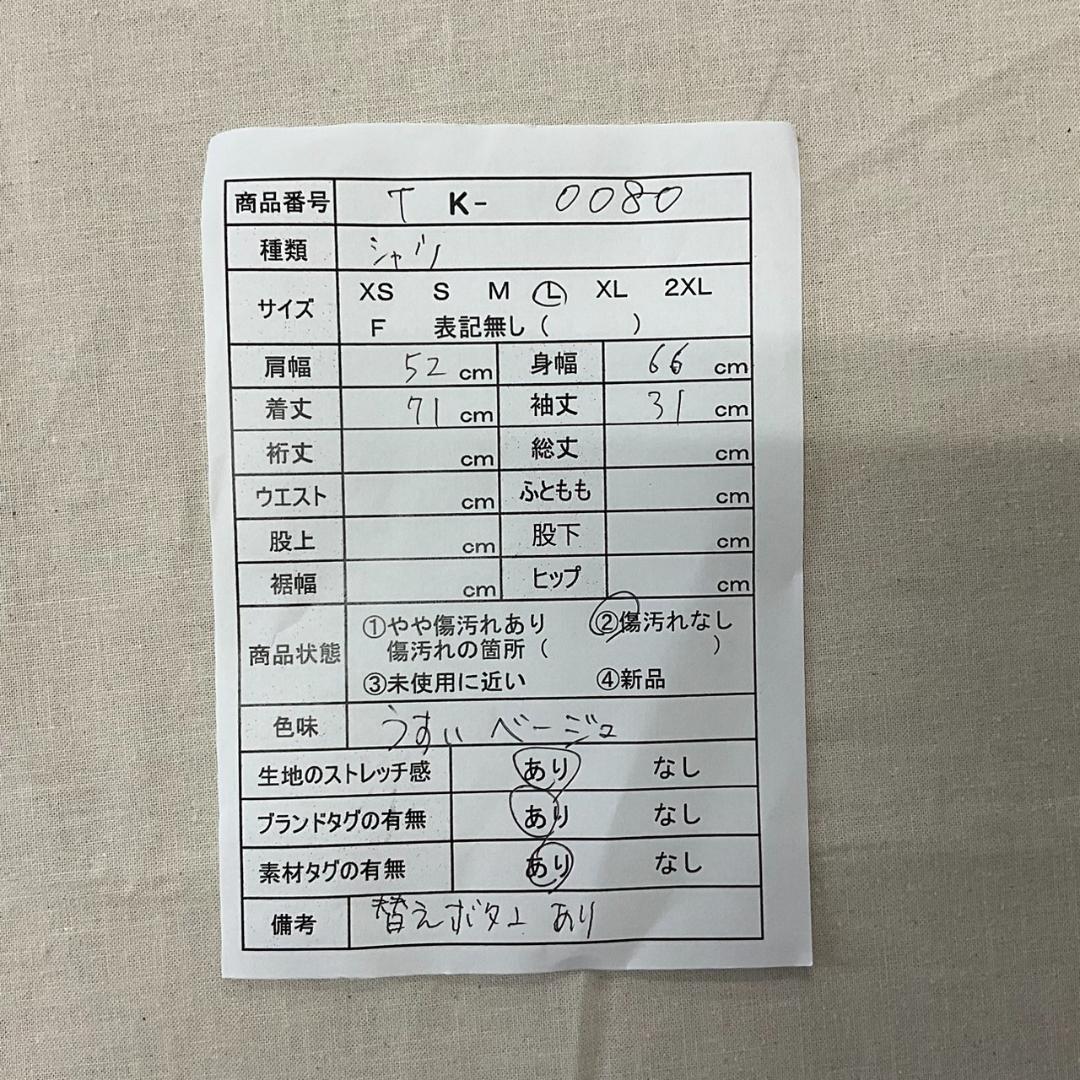 商品番号 T K- 0080
種類 シャツ
サイズ XS S M L XL 2XL
F 表記無し ( )
肩幅 52 cm 身幅 66 cm
着丈 71 cm 袖丈 31 cm
裄丈 cm 総丈 cm
ウエスト cm ふともも cm
股上 cm 股下 cm
裾幅 cm ヒップ cm
商品状態 ①やや傷汚れあり ②傷汚れなし
傷汚れの箇所 ( )
③未使用に近い ④新品
色味 うすい ベージュ
生地のストレッチ感 あり なし
ブランドタグの有無 あり なし
素材タグの有無 あり なし
備考 替えボタン あり